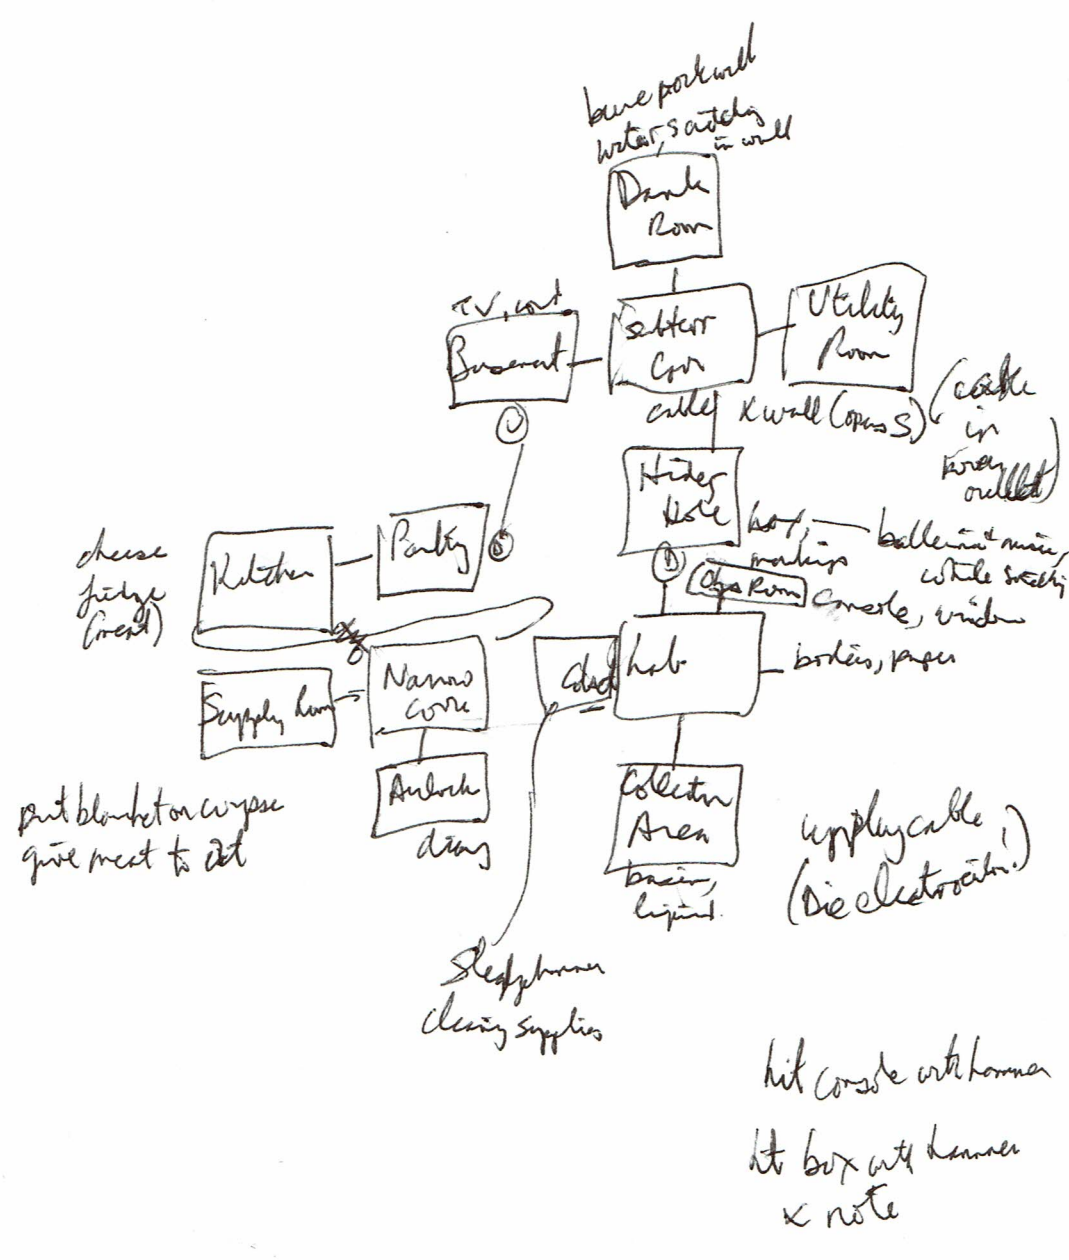 bare rock wall
water, scratching
in wall
Dank
Room
TV, cord
Basement
Subterr
Corr
Utility
Room
cable
x wall (opens S)
(cable
in
power
outlet)
U
Hidey
Hole
box,
markings
ballerina + music,
while
D
Ops Room
console, window
cheese
fridge
(meat)
Kitchen
Pantry
D
Supply Room
Narrow
Corr
Closet
Lab
bodies, paper
Airlock
diary
Collection
Area
basin,
liquid
put blanket on corpse
give meat to
unplug cable
(Die electrocution!)
Sledgehammer
cleaning supplies
hit console with hammer
hit box with hammer
x note